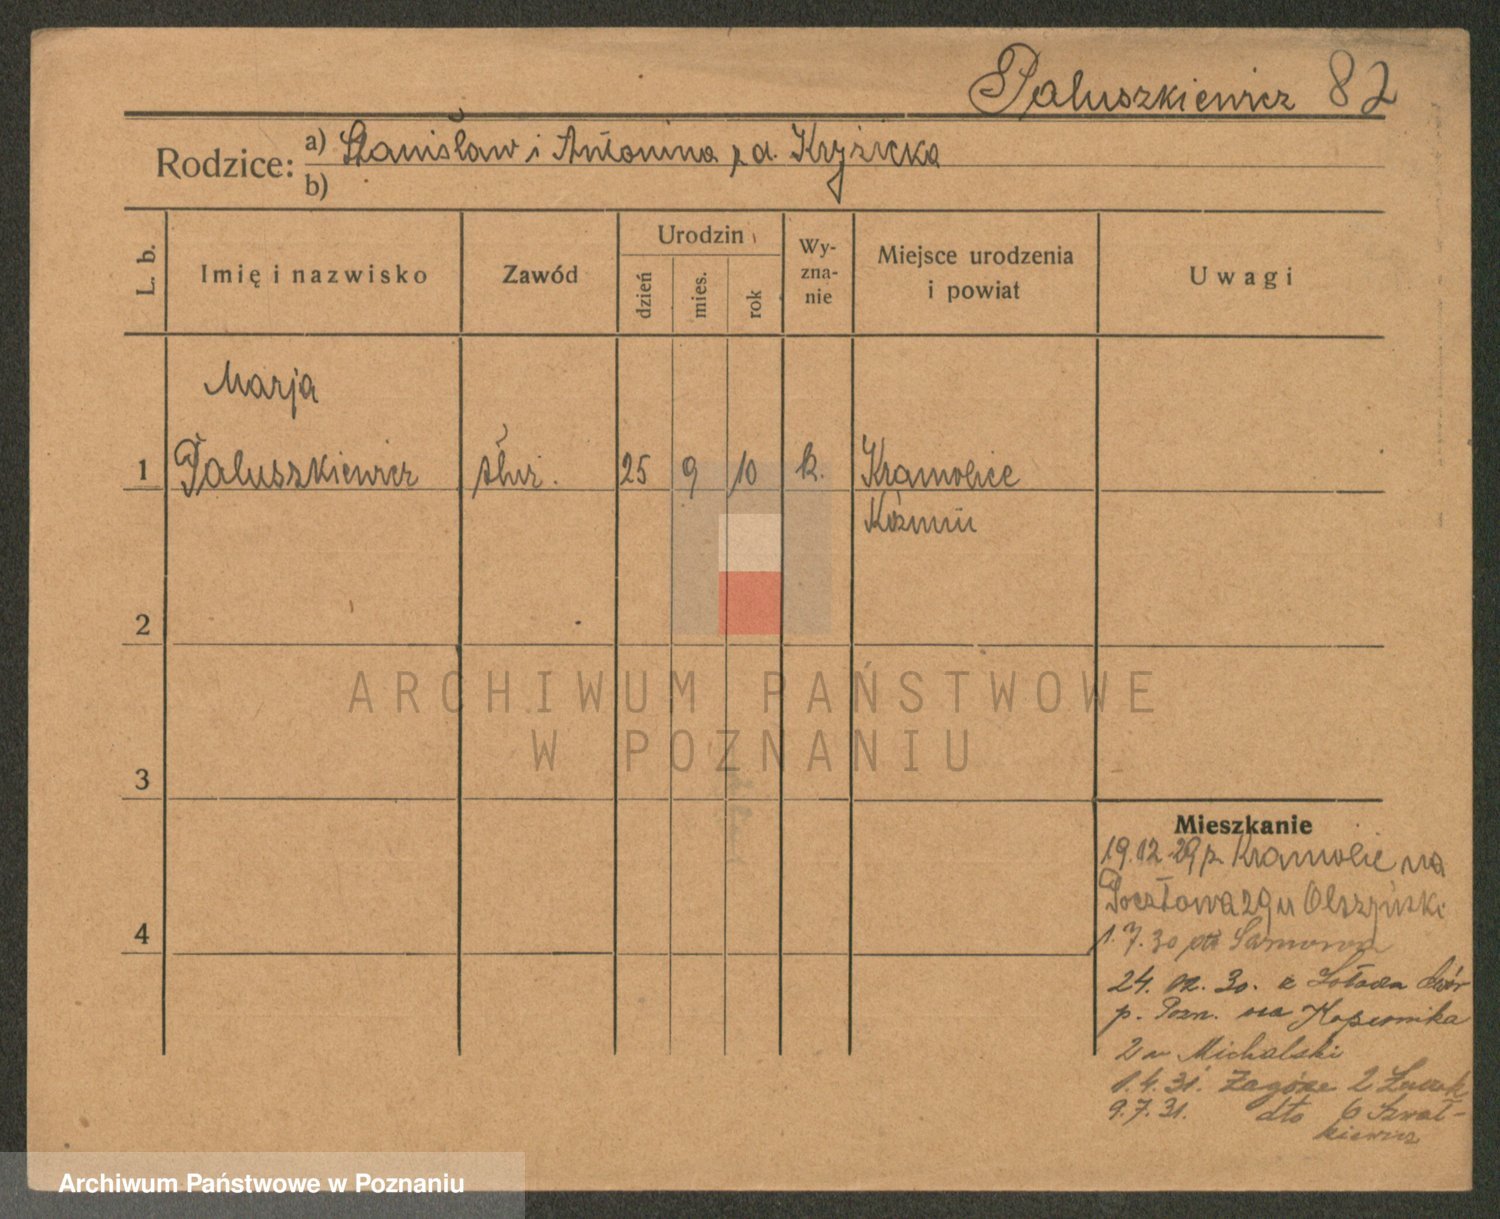 Paluszkiewicz 82
Rodzice: a) Stanisław i Antonina z d. Kryzicka
b)
L. b.
Imię i nazwisko
Zawód
Urodzin
dzień
mies.
rok
Wy-
zna-
nie
Miejsce urodzenia
i powiat
Uwagi
Marja
1 Paluszkiewicz służ. 25 9 10 k. Kramolice
Koźmin
2
3
4
ARCHIWUM PAŃSTWOWE
W POZNANIU
Mieszkanie
19.12.29 z Kramolic na
Pocztowa 29 u Olszyński
1.7.30
24. 12. 30. z
p. Pozn. na Kopernika
2 u Michalski
1.4.31. Zagórze 2
9.7.31. dto 6 Szwał-
kiewicz
Archiwum Państwowe w Poznaniu